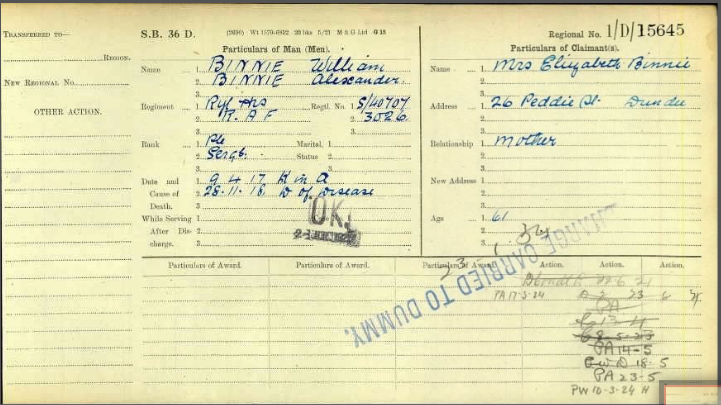 TRANSFERRED TO—
REGION.
NEW REGIONAL No.
OTHER ACTION.
S.B. 36 D.
Regional No. 1/D/15645
Particulars of Man (Men).
Name 1. BINNIE William
2. BINNIE Alexander.
3.
Regiment 1. Ryl Hrs Regtl. No. 1. S/40707
2. R.A.F 2. 3026
3. 3.
Rank 1. Pte Marital, 1.
2. Sergt. Status 2.
3. 3.
Date and 1. 9 4 17 K in A
Cause of 2. 28.11.18. D of Disease
Death. 3.
While Serving 1.
After Dis- 2.
charge. 3.
O.K.
Particulars of Claimant(s).
Name 1. Mrs Elizabeth Binnie
2.
3.
Address 1. 26 Peddie St. Dundee
2.
3.
Relationship 1. Mother
2.
3.
New Address 1.
2.
3.
Age 1. 61
2.
3.
CHARGE CARRIED TO DUMMY.
Particulars of Award. Particulars of Award. Particulars of Award. Action. Action. Action.
PA 17-3-24
PA
PA 14-5
18-5
PA 23-5
PW 10-3-24 H